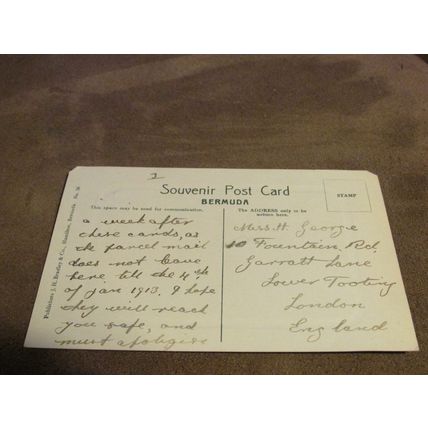 2
Souvenir Post Card
BERMUDA
This space may be used for communication.
The ADDRESS only to be
written here.
STAMP
Publishers J. H. Bradley & Co., Hamilton, Bermuda. No. 36
a week after
these cards, as
the parcel mail
does not leave
here till the 4th
of jan 1913. I hope
they will reach
you safe, and
must apologise
Miss. H. George
10 Fountain Rd.
Garratt Lane
Lower Tooting
London
England